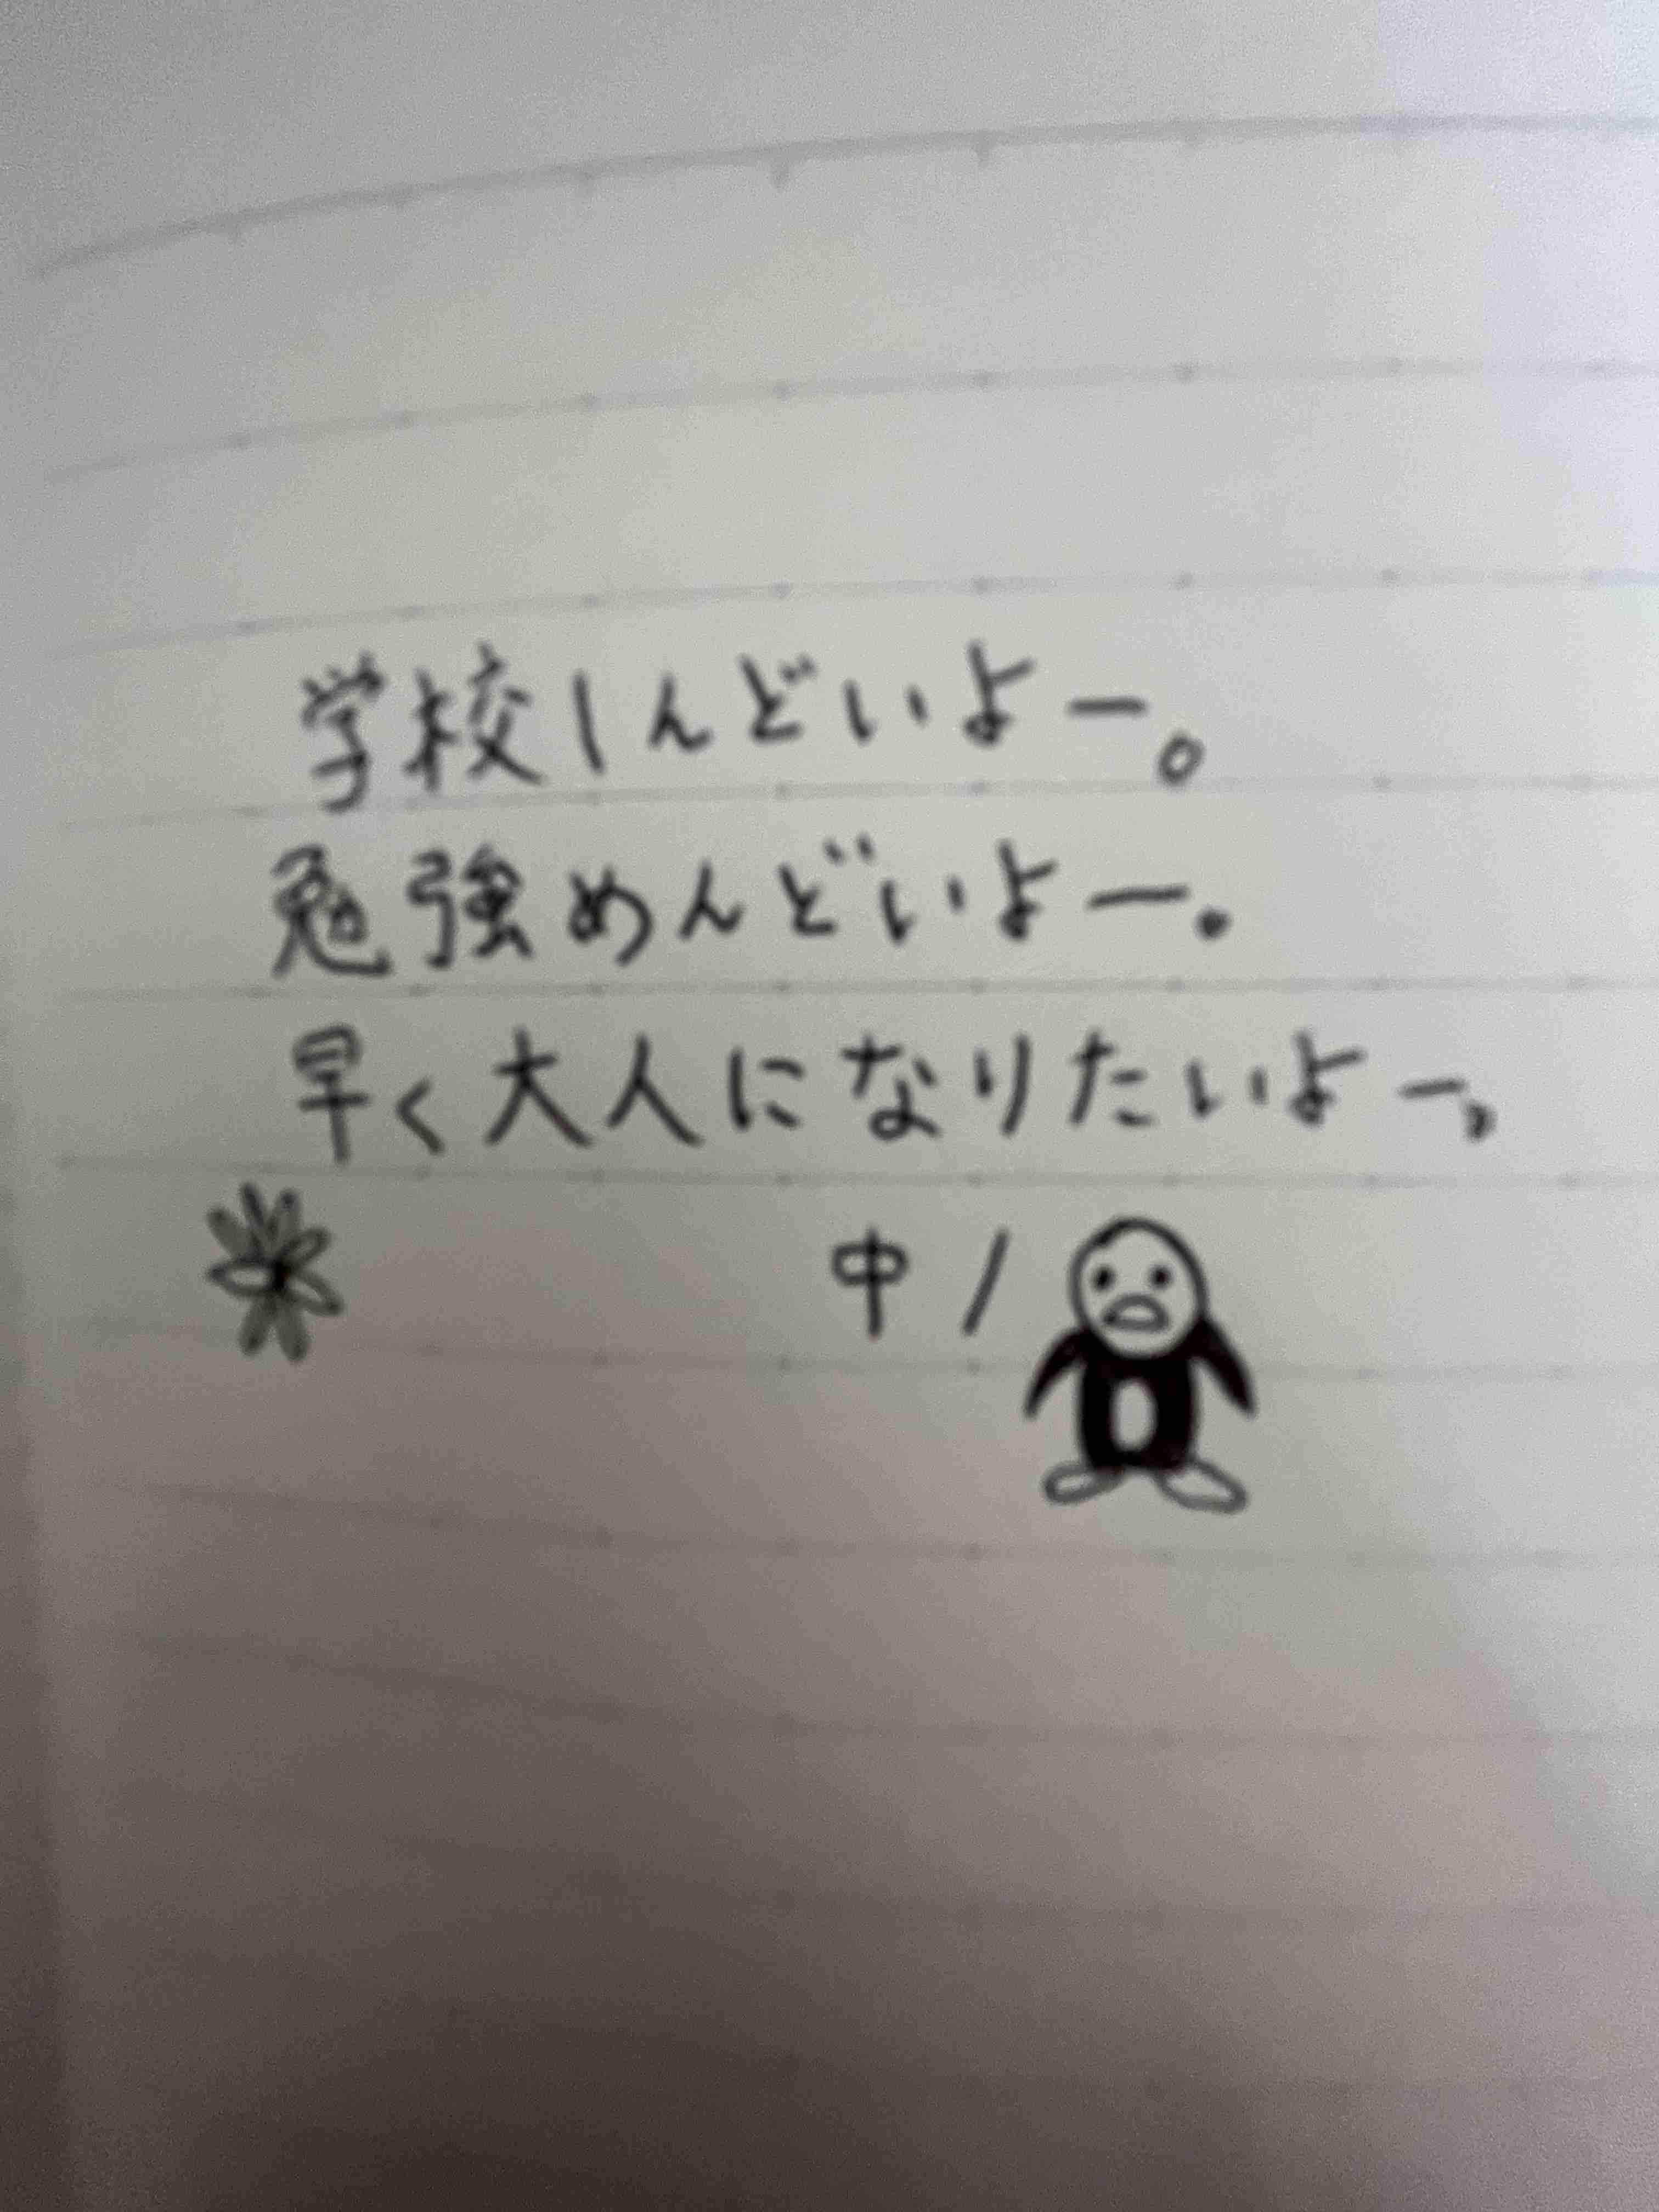 学校しんどいよー。
勉強めんどいよー。
早く大人になりたいよー。
中1